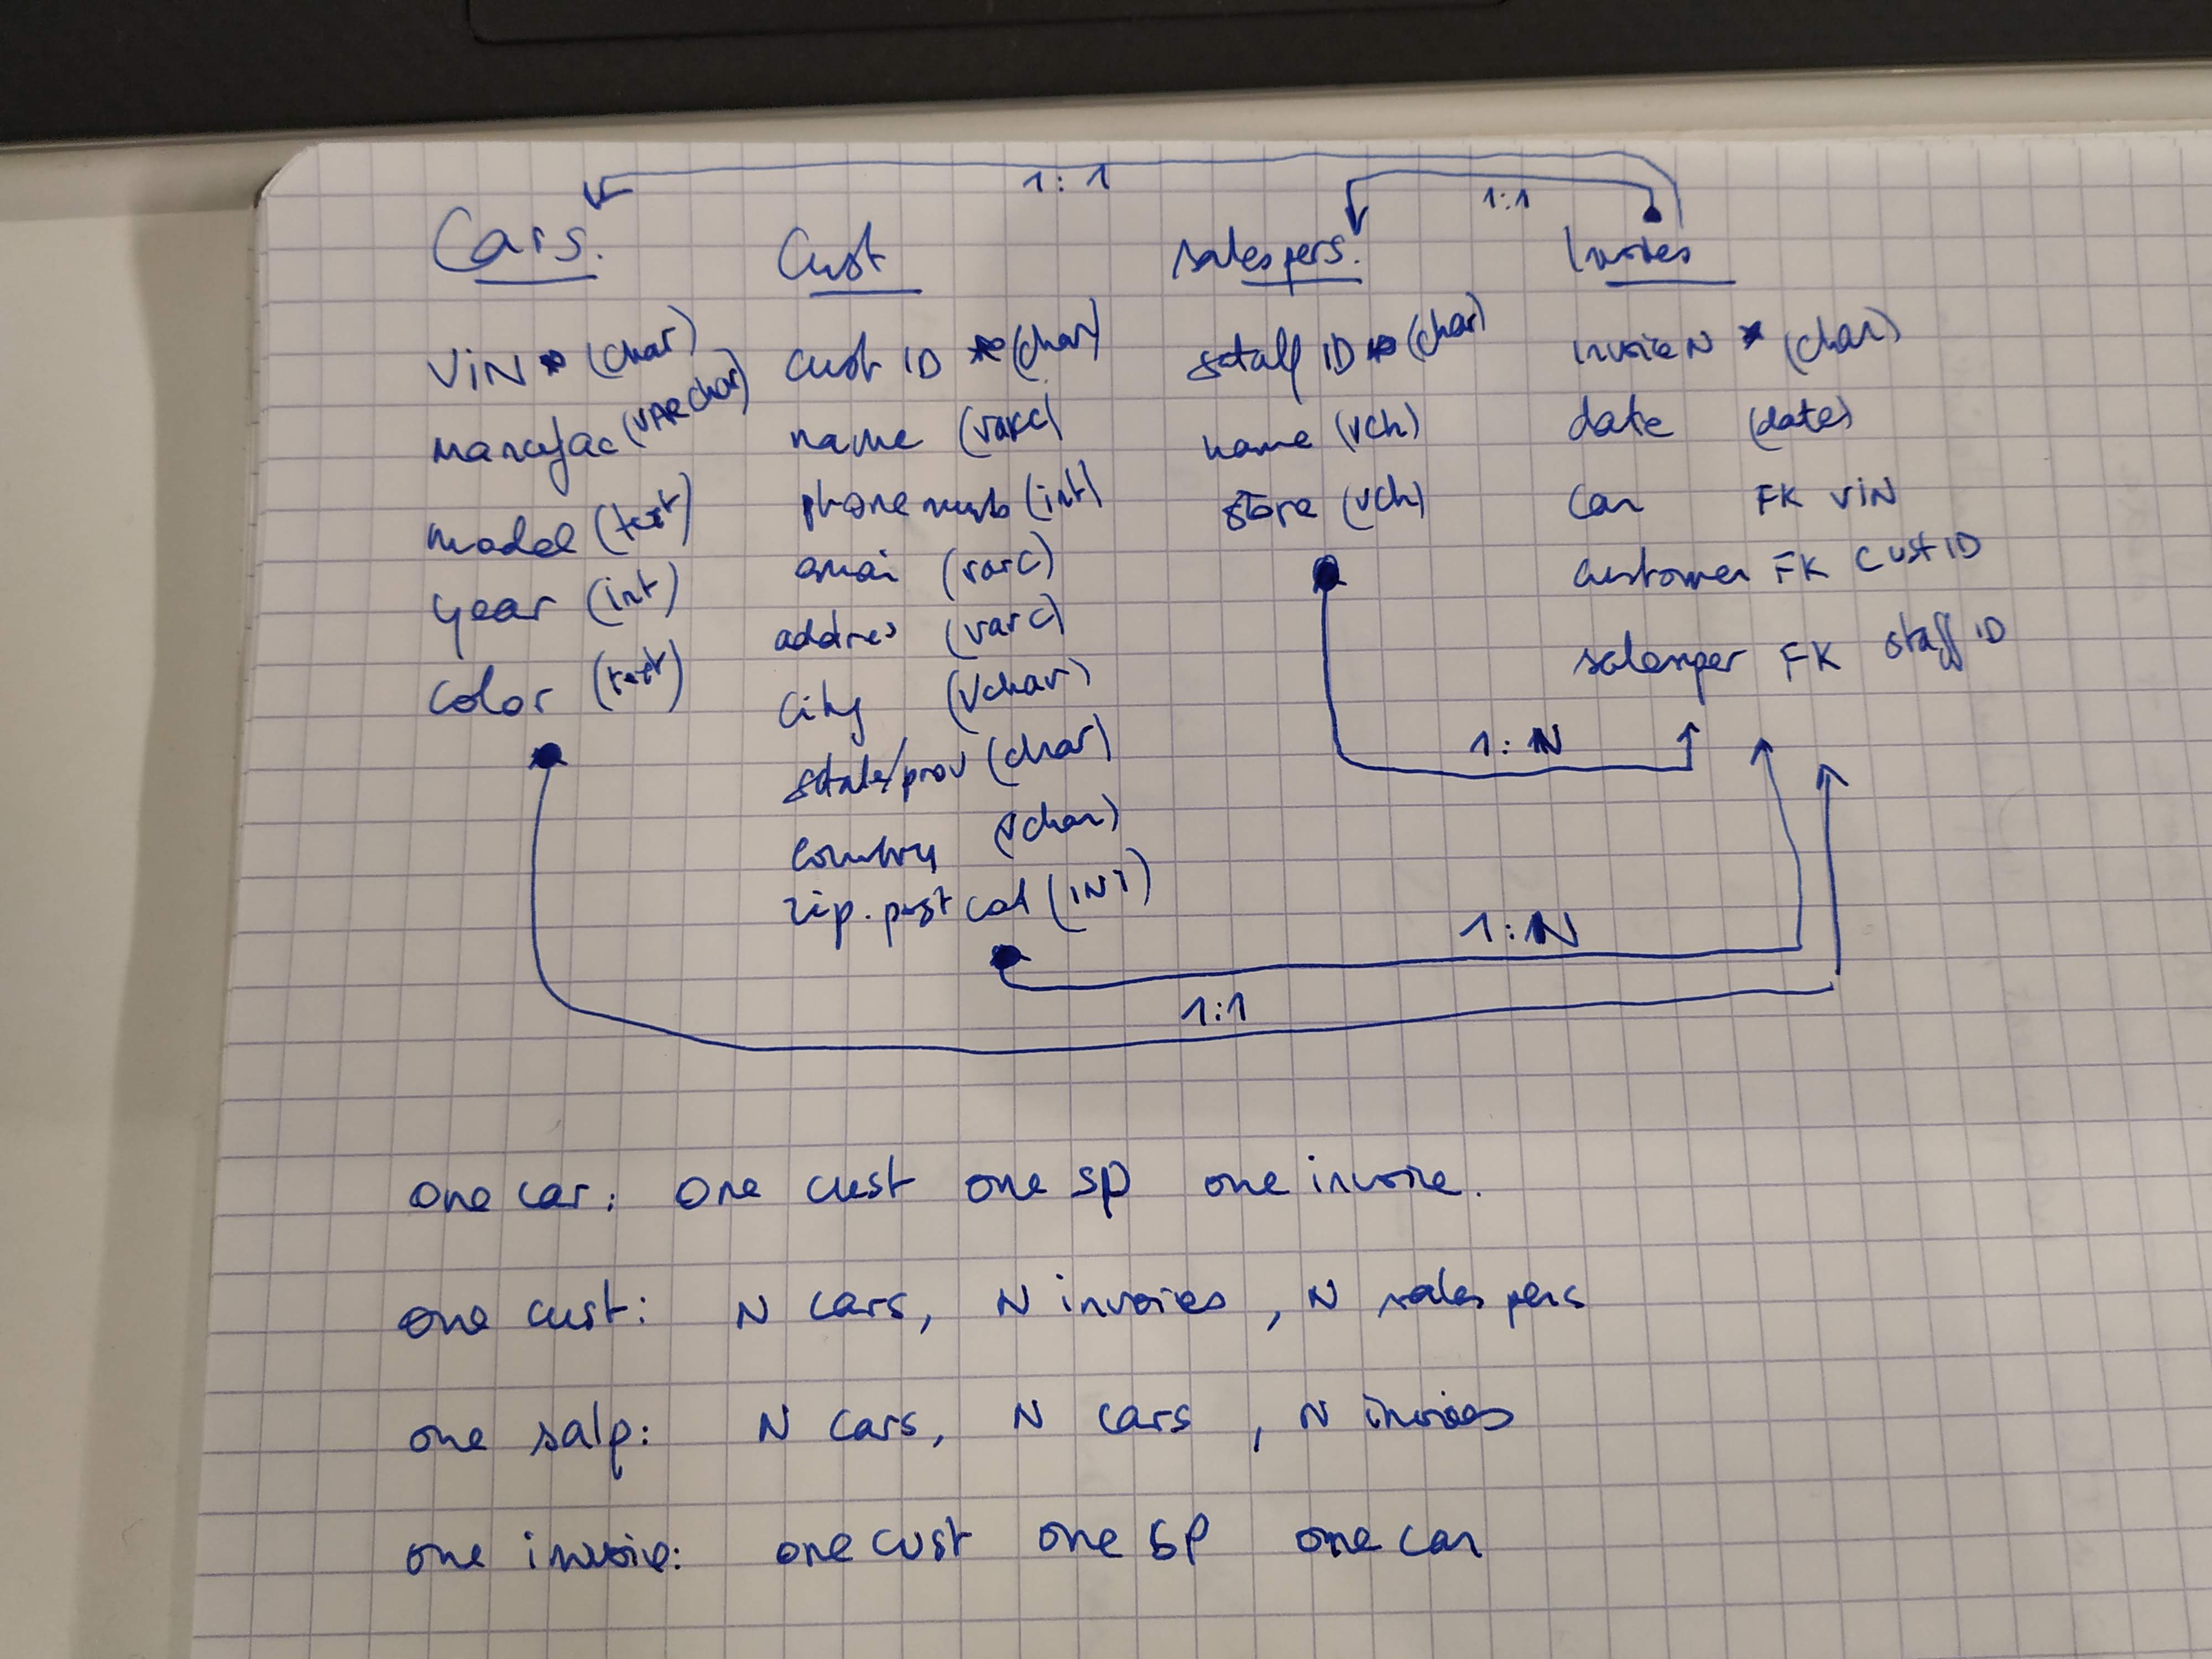 1:1
1:1
Cars:
VIN * (char)
manufac (VARchar)
model (text)
year (int)
color (text)
Cust
cust ID * (char)
name (varc)
phone numb (int)
emai (varc)
addres (varc)
city (Vchar)
state/prov (char)
country (Vchar)
zip. post cod (INT)
salespers:
staff ID * (char)
name (vch)
store (vch)
Invoices
invoice N * (char)
date (date)
Car FK VIN
customer FK CUST ID
salesper FK staff ID
1:N
1:N
1:1
one car: one cust one SP one invoice.
one cust: N cars, N invoices, N sales pers
one salp: N cars, N cars, N invoices
one invoice: one cust one SP one car